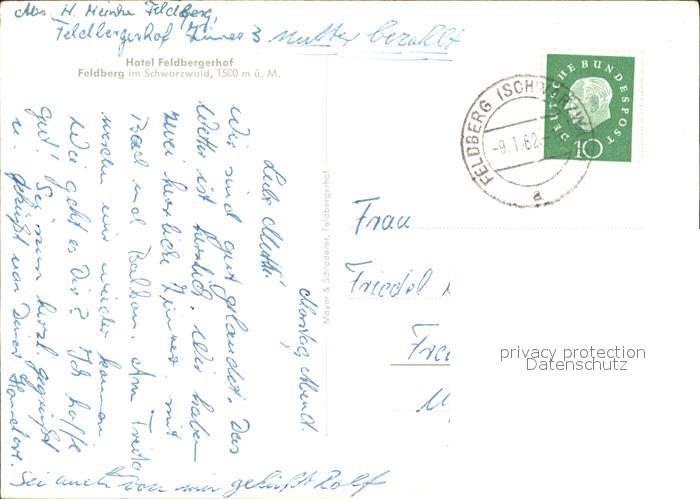 Abs. H. Meinke Feldberg,
Feldbergerhof Zimmer 3 Mutter bezahlt
Hotel Feldbergerhof
Feldberg im Schwarzwald, 1500 m ü. M.
DEUTSCHE BUNDESPOST
10
FELDBERG (SCHWARZW)
-9.1.62-
a
Mayer & Schladerer, Feldbergerhof
Montag Abend.
Liebe Mutti!
Wir sind gut gelandet. Das
Wetter ist herrlich. Wir haben
zwei herrliche Zimmer mit
Bad und Balkon. Am Freitag
wir wieder kommen
Wie geht es Dir? Ich hoffe
gut! Sei nun herzl. gegrüßt
u. geküßt von Deiner
Sei auch von mir geküßt Rolf
Frau
Friedel
privacy protection
Datenschutz